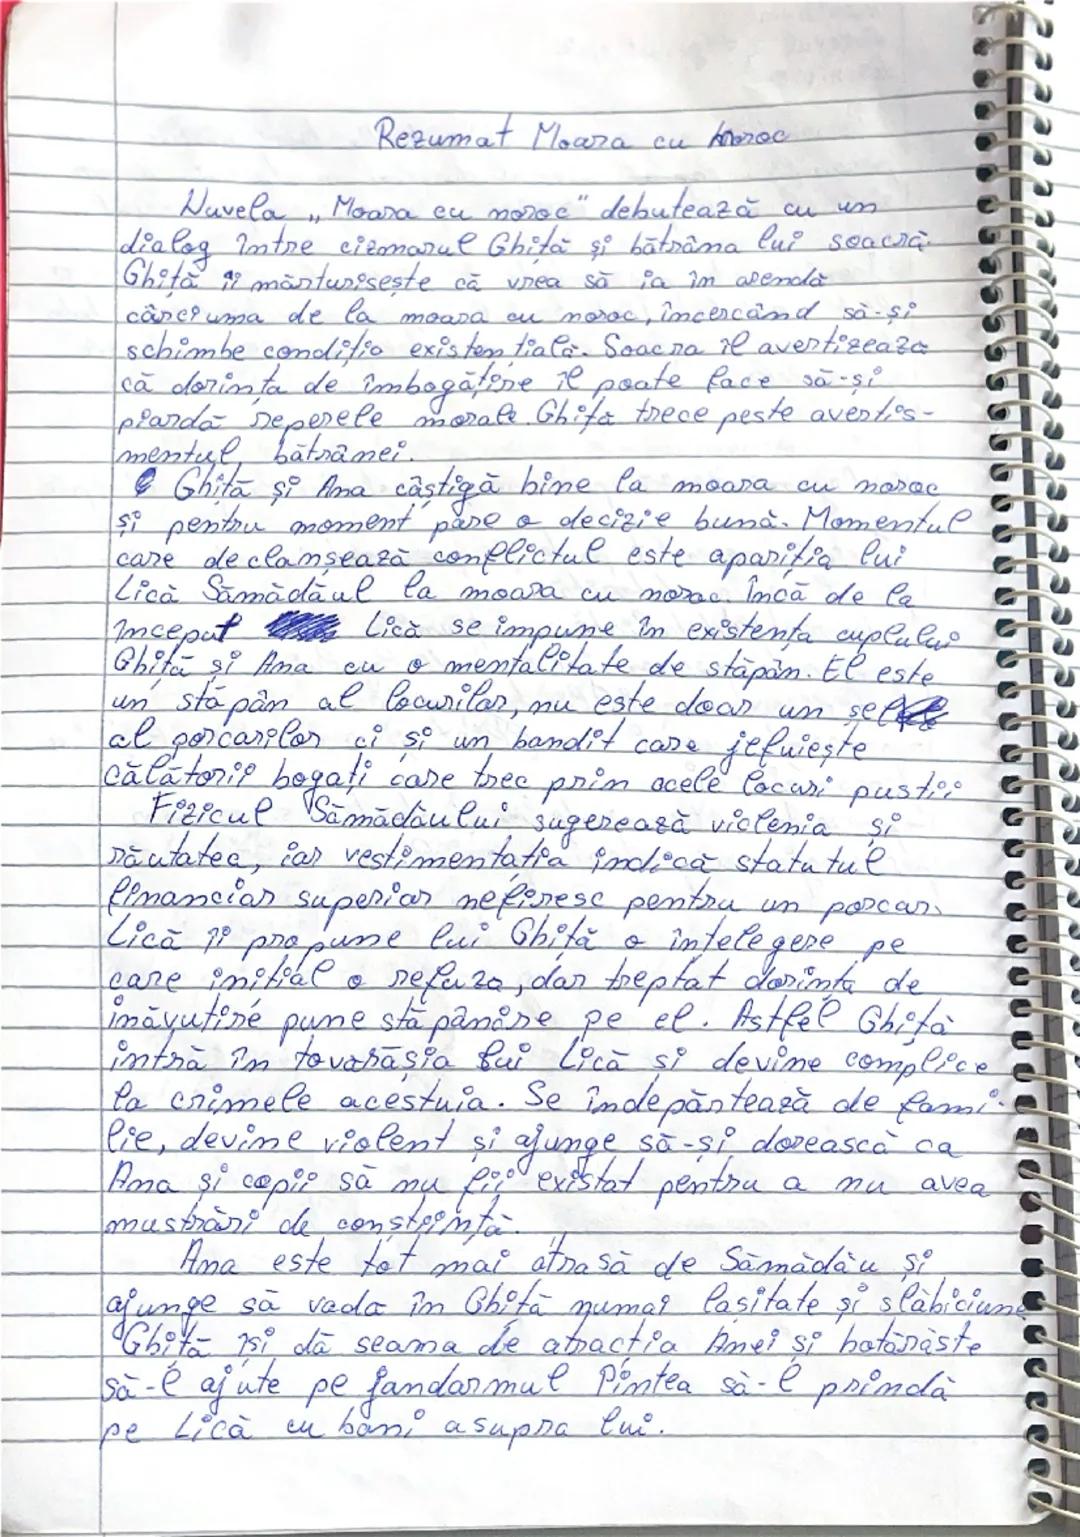 Rezumat Moara cu noroc
Nuvela „Moara cu noroc" debutează cu un
dialog între cizmarul Ghiță și bătrâna lui soacră.
Ghiță îi mărturisește că vrea să ia în arendă
cârciuma de la moara cu noroc, încercând să-și
schimbe condiția existențială. Soacra îl avertizează
că dorința de îmbogățire îl poate face să-și
piardă reperele morale. Ghiță trece peste avertis-
mentul bătrânei.
Ghiță și Ana câștigă bine la moara cu noroc
și pentru moment pare o decizie bună. Momentul
care declanșează conflictul este apariția lui
Lică Sămădăul la moara cu noroc. Încă de la
început Lică se impune în existența cuplului
Ghiță și Ana cu o mentalitate de stăpân. El este
un stăpân al locurilor, nu este doar un șef
al porcarilor ci și un bandit care jefuiește
călătorii bogați care trec prin acele locuri pustii
Fizicul Sămădăului sugerează viclenia și
răutatea, iar vestimentația indică statutul
financiar superior nefiresc pentru un porcar.
Lică îi propune lui Ghiță o înțelegere pe
care inițial o refuza, dar treptat dorința de
înăvuțire pune stăpânire pe el. Astfel Ghiță
intră în tovarășia lui Lică și devine complice
la crimele acestuia. Se îndepărtează de fami-
lie, devine violent și ajunge să-și dorească ca
Ana și copii să nu fii existat pentru a nu avea
mustrări de conștiință.
Ana este tot mai atrasă de Sămădău și
ajunge să vada în Ghiță numai lașitate și slăbiciune
Ghiță își dă seama de atracția Anei și hotărăște
să-l ajute pe jandarmul Pintea să-l prindă
pe Lică cu bani asupra lui.